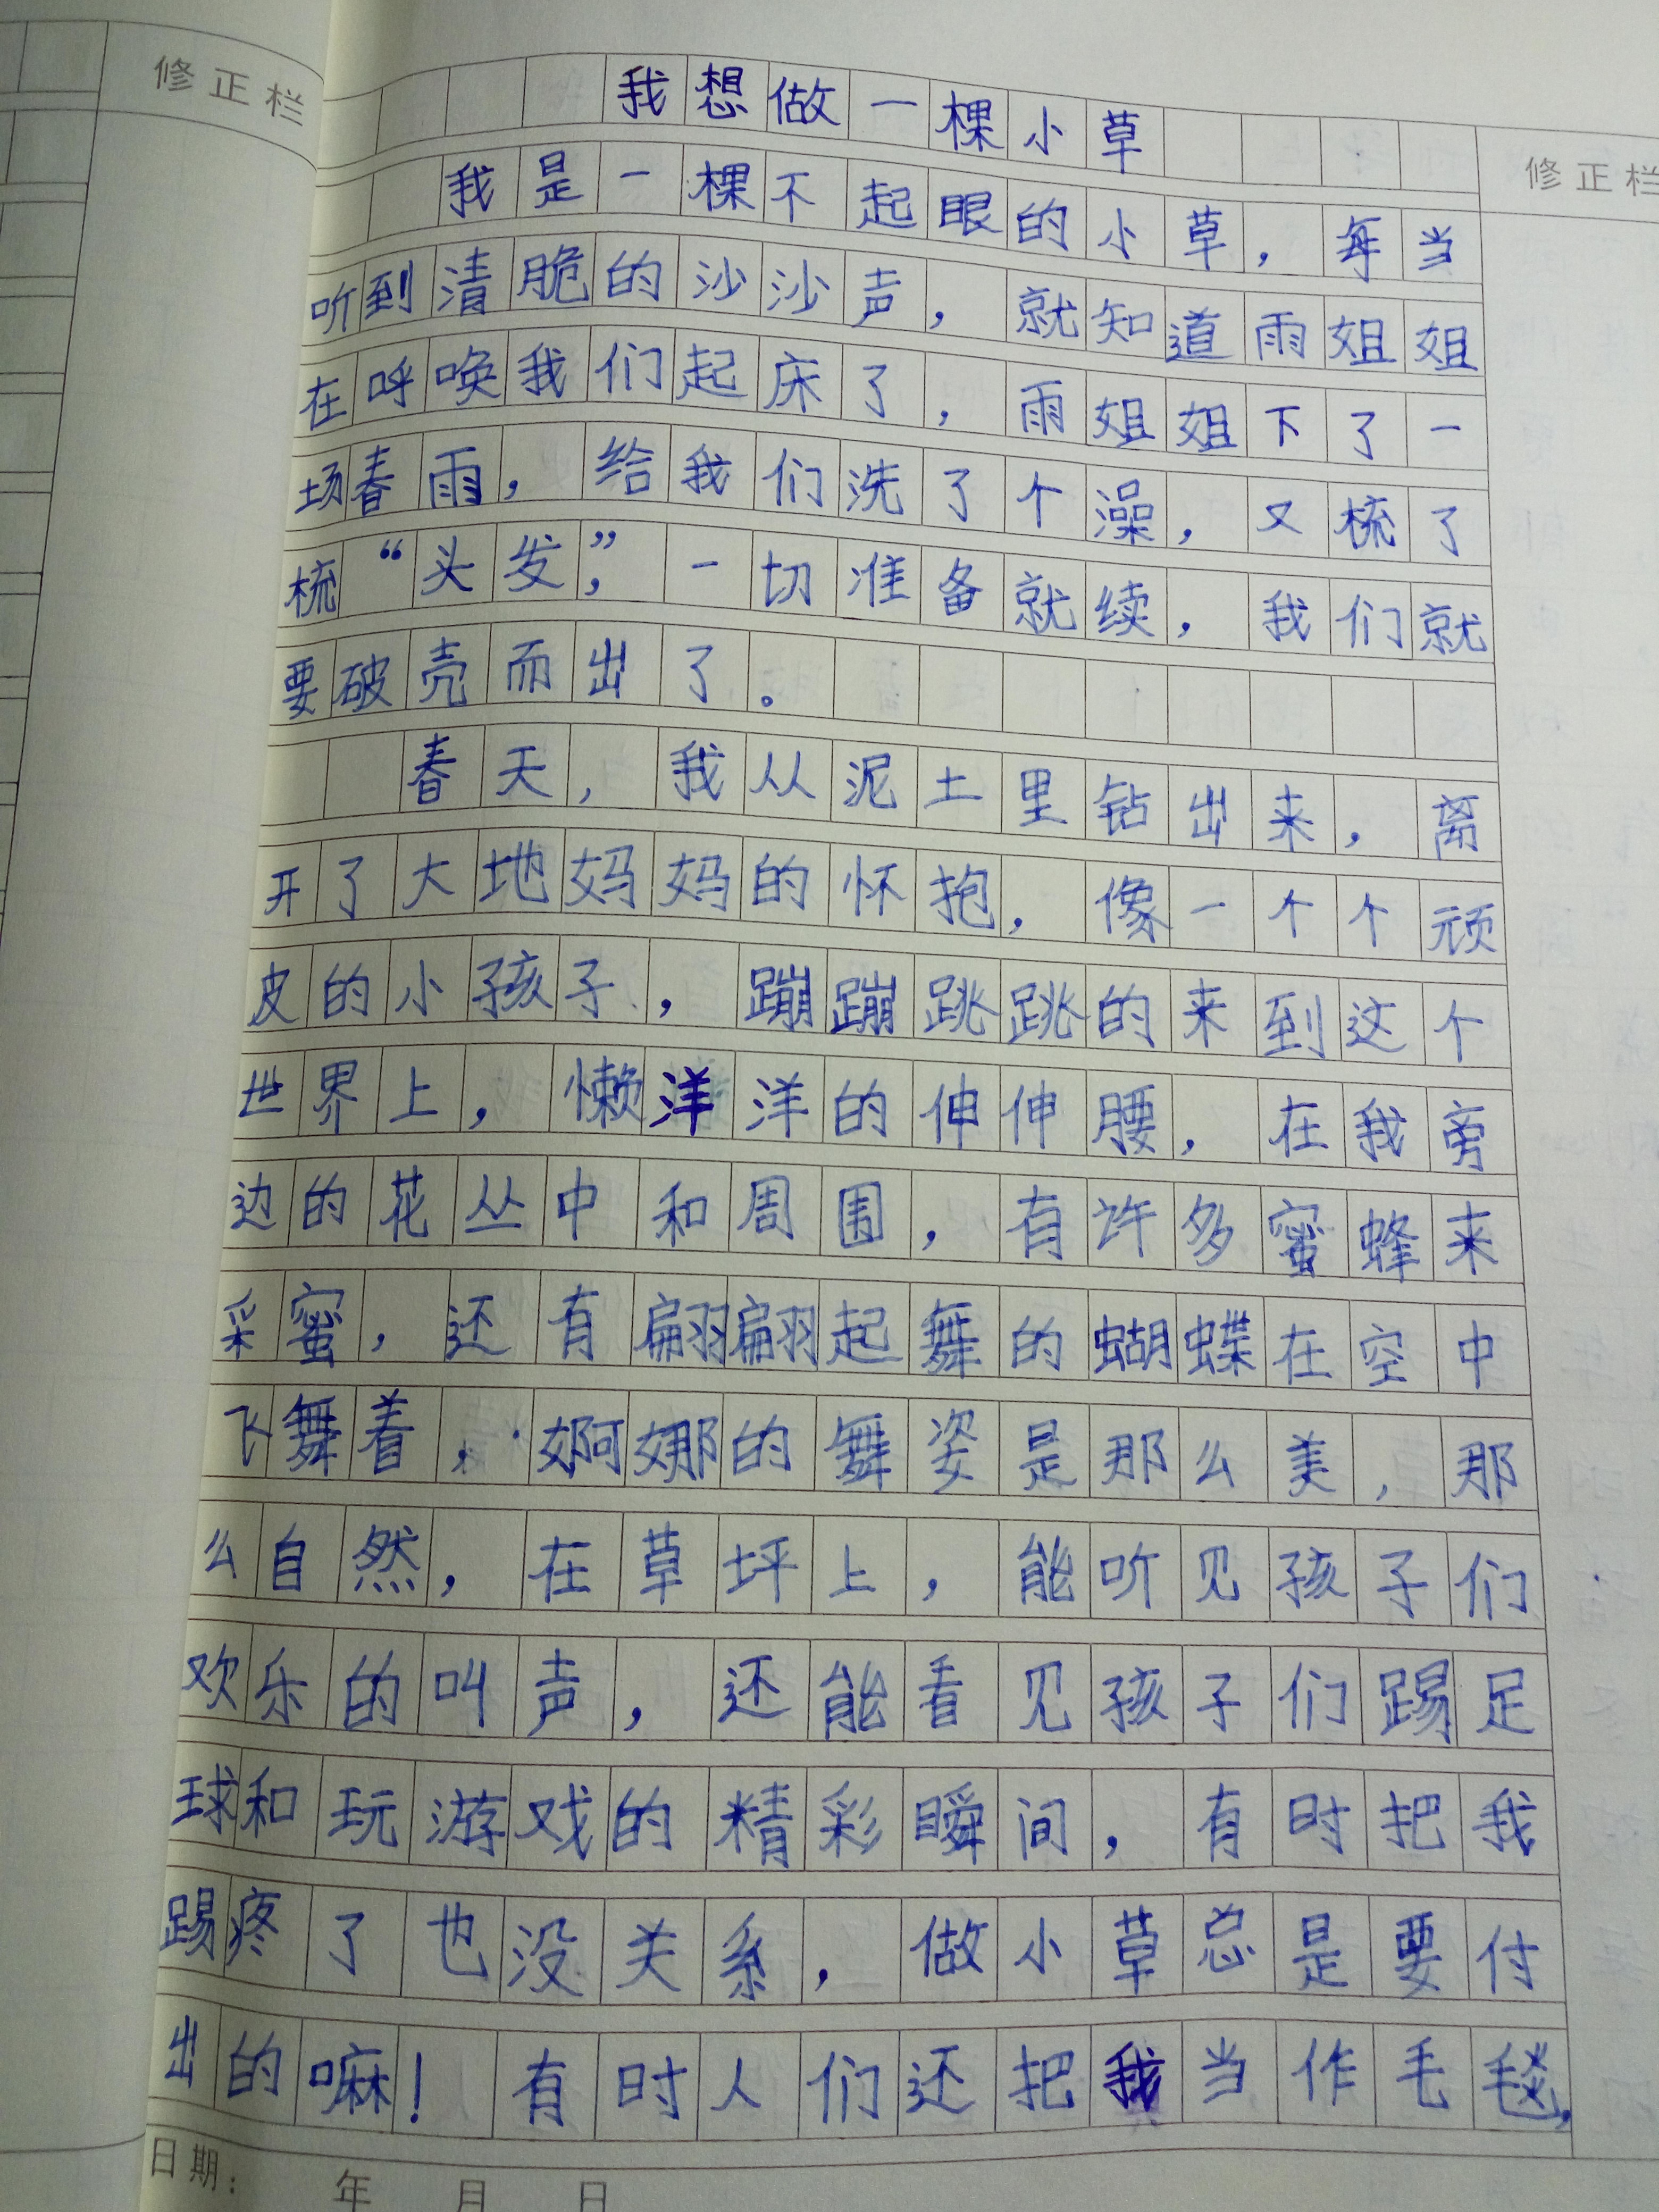 修正栏
我想做一棵小草
修正栏
我是一棵不起眼的小草，每当
听到清脆的沙沙声，就知道雨姐姐
在呼唤我们起床了，雨姐姐下了一
场春雨，给我们洗了个澡，又梳了
梳“头发”，一切准备就续，我们就
要破壳而出了。
春天，我从泥土里钻出来，离
开了大地妈妈的怀抱，像一个个顽
皮的小孩子，蹦蹦跳跳的来到这个
世界上，懒洋洋的伸伸腰，在我旁
边的花丛中和周围，有许多蜜蜂来
采蜜，还有翩翩起舞的蝴蝶在空中
飞舞着，婀娜的舞姿是那么美，那
么自然，在草坪上，能听见孩子们
欢乐的叫声，还能看见孩子们踢足
球和玩游戏的精彩瞬间，有时把我
踢疼了也没关系，做小草总是要付
出的嘛！有时人们还把我当作毛毯，
日期： 年 月 日